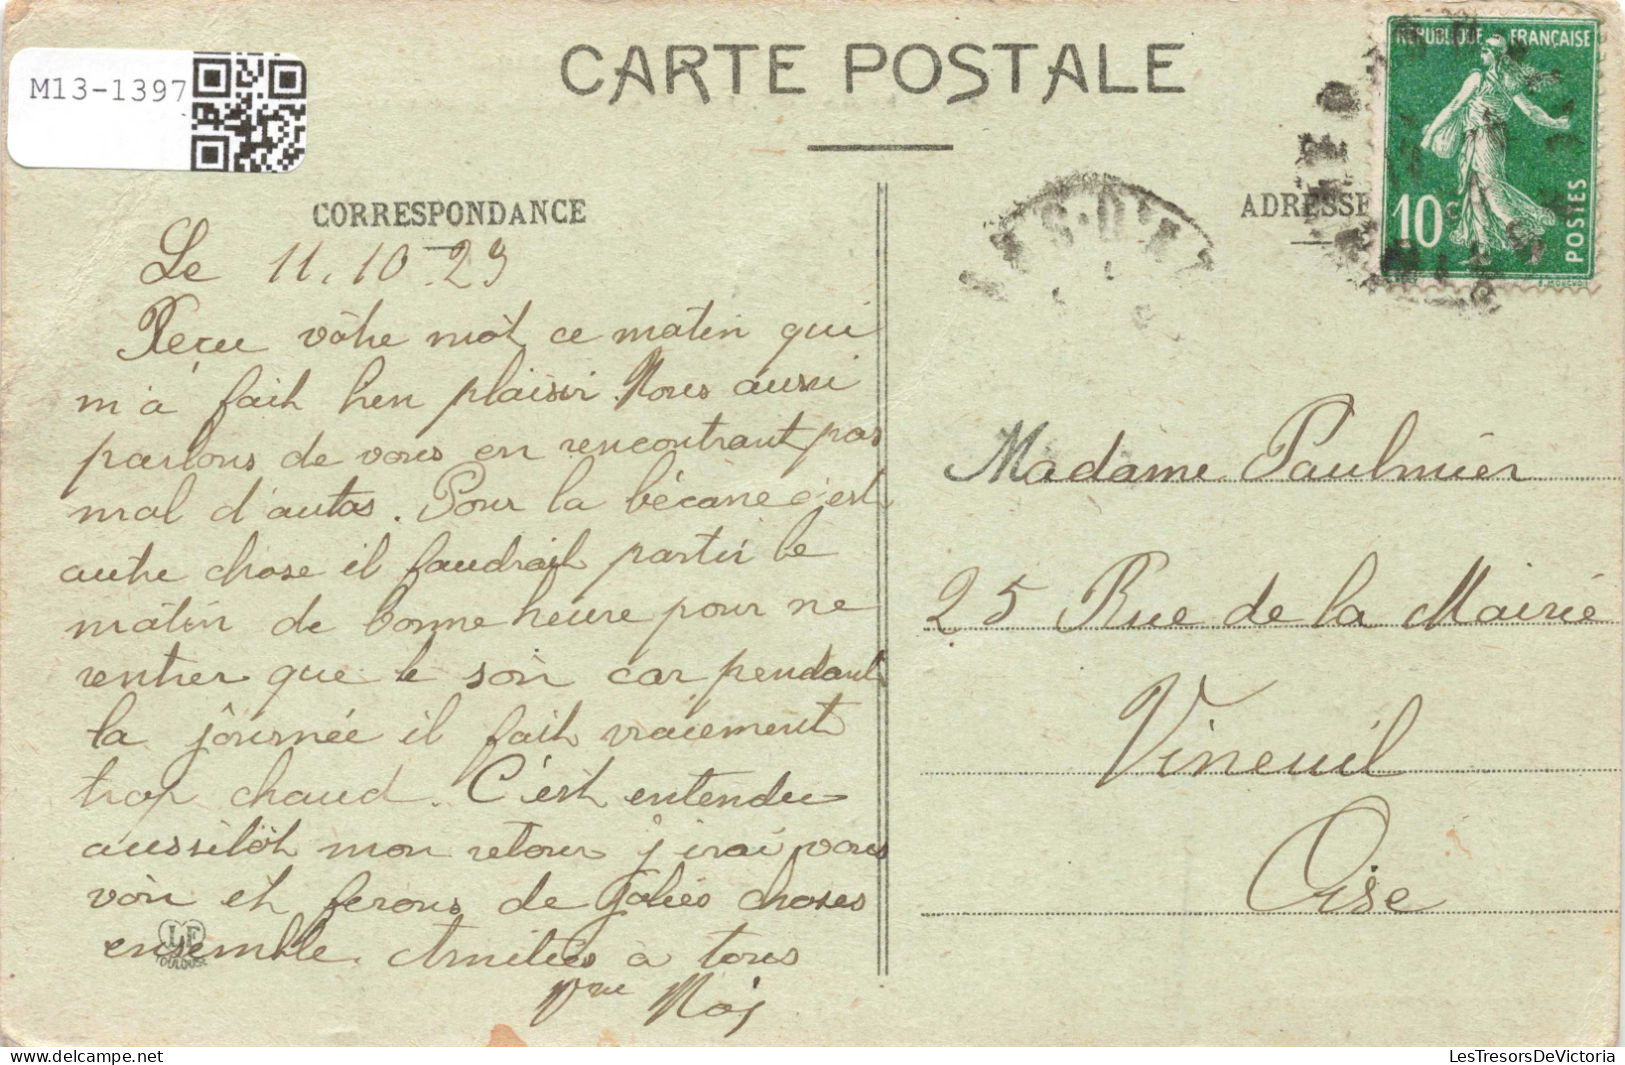 M13-1397
CARTE POSTALE
CORRESPONDANCE
ADRESSE
REPUBLIQUE FRANÇAISE
10c
POSTES
Le 11.10.23
Reçu vôtre mot ce matin qui
m'a fait bien plaisir. Nous aussi
parlons de vous en rencontrant pas
mal d'autos. Pour la bécane c'est
autre chose il faudrait partir le
matin de bonne heure pour ne
rentrer que le soir car pendant
la journée il fait vraiement
trop chaud. C'est entendu
aussitôt mon retour j'irai vous
voir et ferons de jolies choses
ensemble. Amitiés à tous
Madame Paulmier
25 Rue de la Mairie
Vineuil
Oise
LF
TOULOUSE
LesTresorsDeVictoria